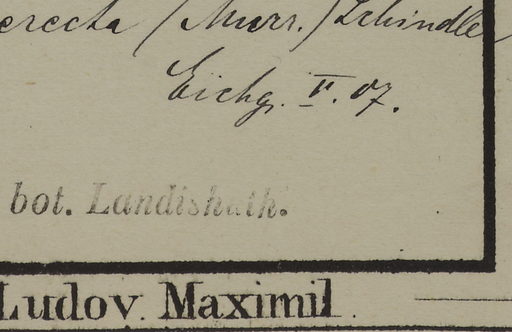 erecta (Murr.) Schindler
Eichg. V. 07.
bot. Landishuth.
Ludov. Maximil